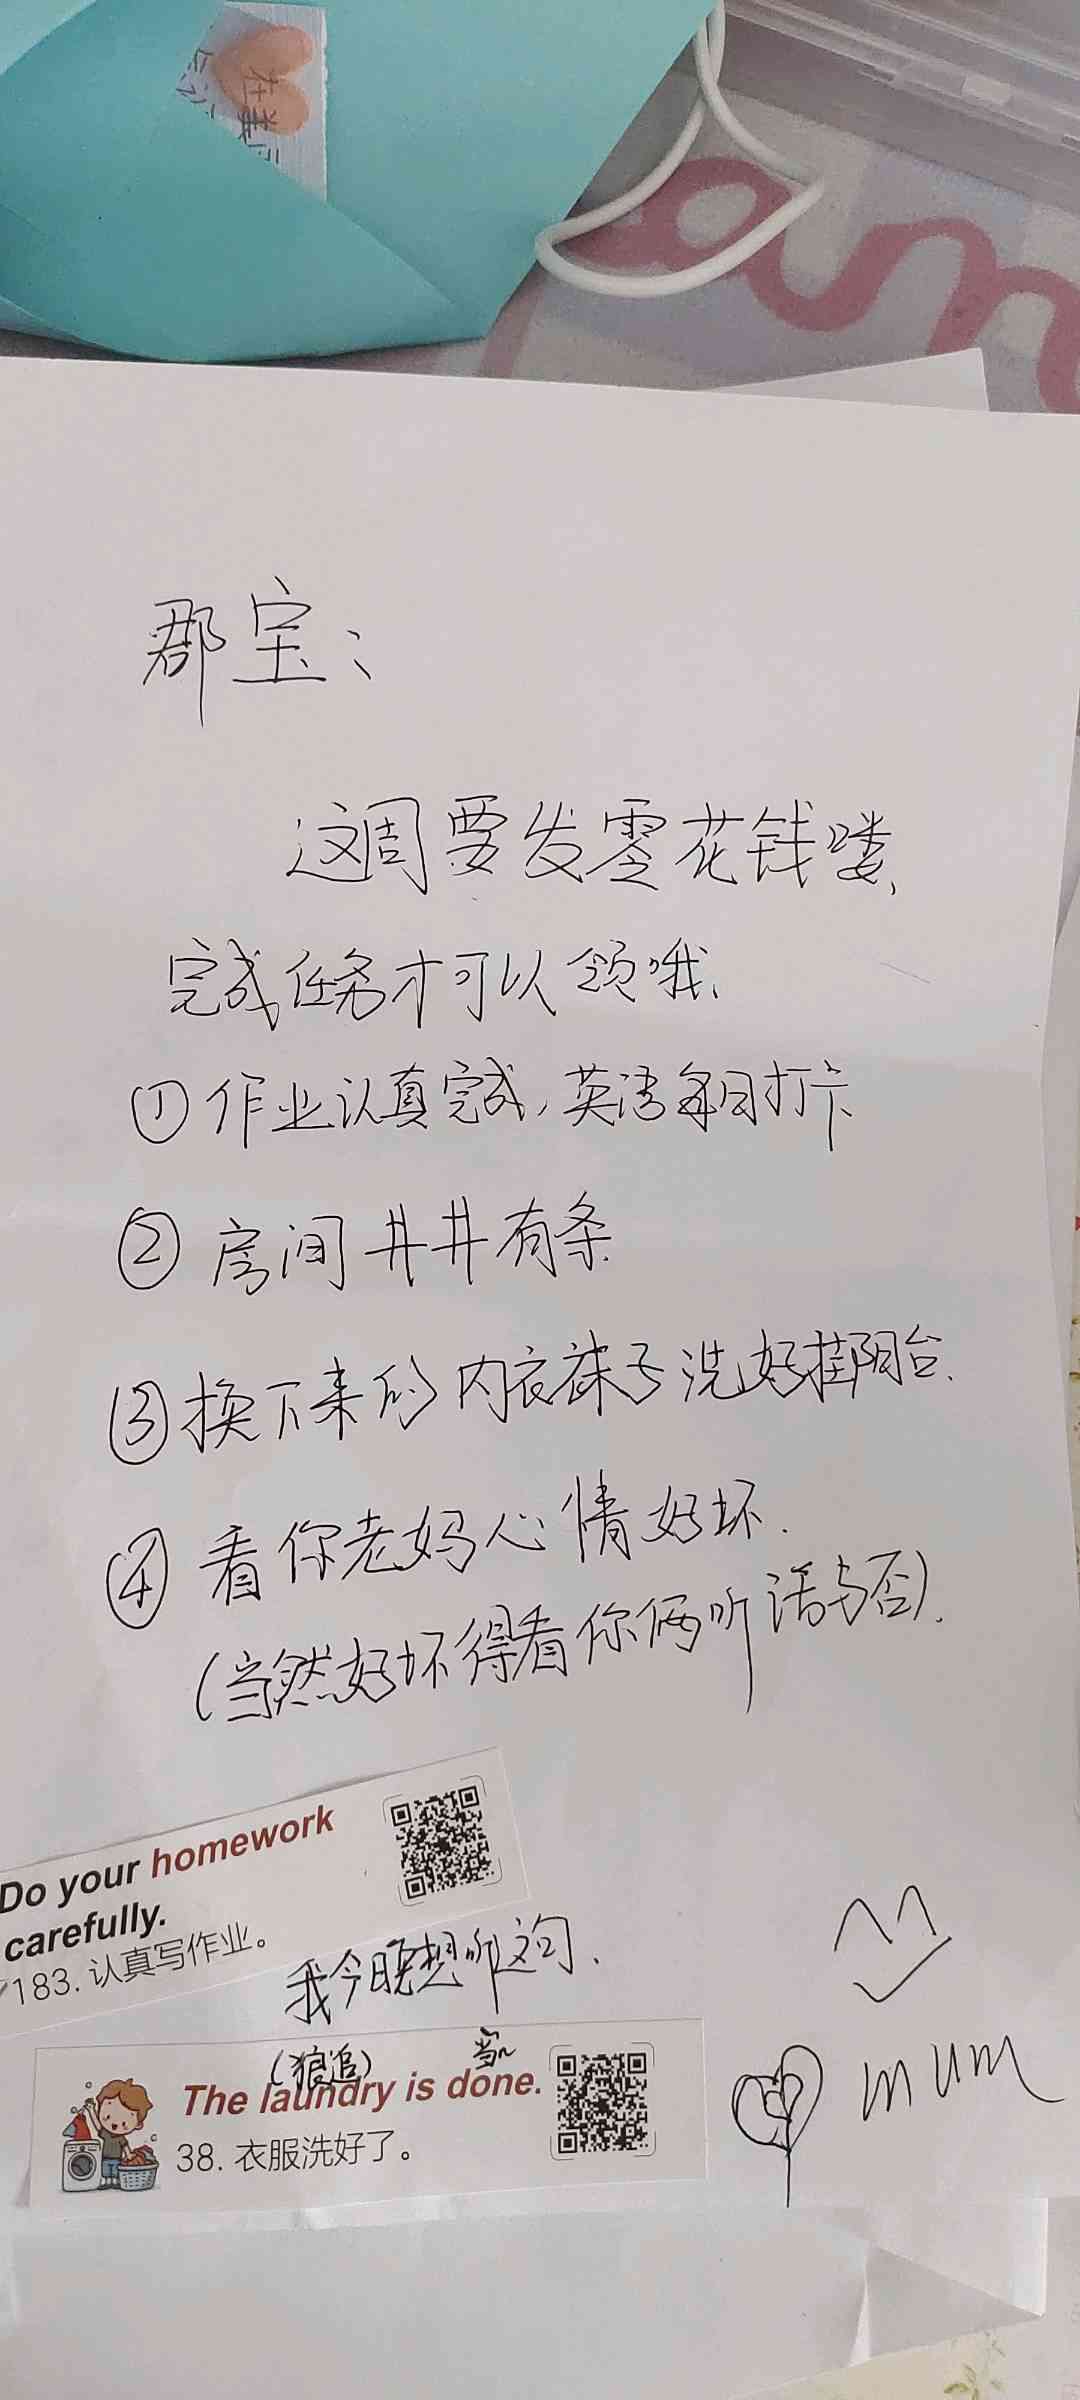 在
郡宝:
这周要发零花钱喽,
完成任务才可以领哦,
① 作业认真完成,英语每日打卡
② 房间井井有条
③ 换下来的内衣袜子洗好挂阳台.
④ 看你老妈心情好坏.
(当然好坏得看你俩听话与否).
Do your homework
carefully.
183. 认真写作业。
我今晚想听这句.
(狼追) 当~
The laundry is done.
38. 衣服洗好了。
mum